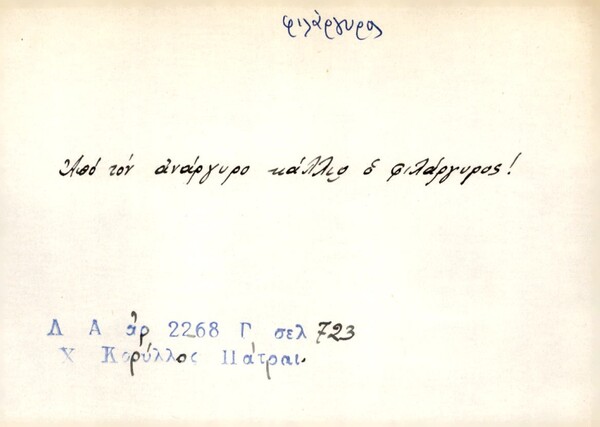 φιλάργυρος
Ἀπό τόν ἀνάργυρο κάλλιο ὁ φιλάργυρος!
Λ Α ἀρ 2268 Γ σελ 723
Χ Κορύλλος Πάτραι